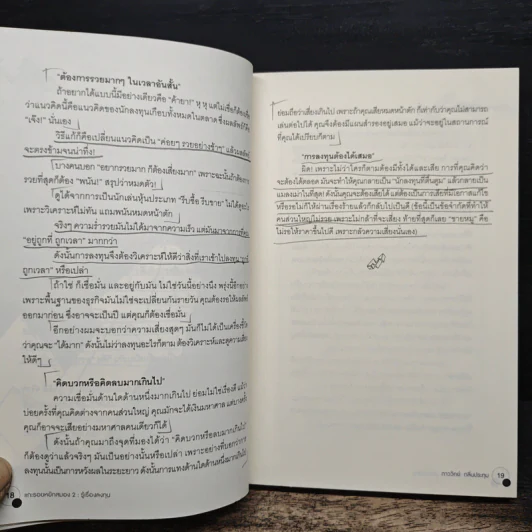 "ต้องการรวยมากๆ ในเวลาอันสั้น"
ถ้าอยากได้แบบนี้มีอย่างเดียวคือ "ค้ายา" หุ หุ แต่ไม่เชื่อก็ต้อง
ว่าแนวคิดนี้คือแนวคิดของนักลงทุนเกือบทั้งหมดในตลาด ซึ่งผลลัพธ์
"เจ๊ง!" นั่นเอง
วิธีแก้ก็คือเปลี่ยนแนวคิดเป็น "ค่อยๆ รวยอย่างช้าๆ" แล้ว
จะตรงข้ามจนน่าทึ่ง!
บางคนบอก "อยากรวยมาก ก็ต้องเสี่ยงมาก" เพราะฉะนั้น
รวยที่สุดก็ต้อง "พนัน!" สรุปว่าหมดตัว!
ได้จากการเป็นนักเล่นหุ้นประเภท "รีบซื้อ รีบขาย" ไม่
เพราะวิเคราะห์ไม่ทัน แถมพนันหมดหน้าตัก
จริงๆ ความร่ำรวยมันไม่ได้มาจากความเร็ว แต่มันมาจากการ
"อยู่ถูกที่ ถูกเวลา" มากกว่า
ดังนั้นการลงทุนจึงต้องวิเคราะห์ให้ได้ว่าสิ่งที่เราเข้าไปลงทุน
ถูกเวลา" หรือเปล่า
ถ้าใช่ ก็เชื่อมั่น และอยู่กับมัน ไม่ใช่วันนี้อย่างนึง พรุ่งนี้อีกอย่าง
เพราะพื้นฐานของธุรกิจมันไม่ใช่จะเปลี่ยนกันรายวัน คุณต้องรอให้ผลลัพธ์
ออกมาก่อน ซึ่งอาจจะเป็นปี แต่คุณก็ต้องเชื่อมั่น
อีกอย่างผมจะบอกว่าความเสี่ยงสุดๆ มันก็ไม่ได้เป็นเครื่องชี้
ว่าคุณจะ "ได้มาก" ดังนั้นไม่ว่าลงทุนอะไรก็ตาม ต้องวิเคราะห์และดูความเสี่ยง
ให้ดีๆ
"คิดบวกหรือคิดลบมากเกินไป"
ความเชื่อมั่นด้านใดด้านหนึ่งมากเกินไป ย่อมไม่ใช่เรื่องดี แม้ว่า
บ่อยครั้งที่คุณคิดต่างจากคนส่วนใหญ่ คุณมักจะได้เงินมหาศาล แต่บางครั้ง
คุณก็อาจจะเสียอย่างมหาศาลคนเดียวก็ได้
ดังนั้นถ้าคุณมาถึงจุดที่มองได้ว่า "คิดบวกหรือลบมากเกินไป"
คุณต้องดูว่าแล้วจริงๆ มันเป็นอย่างนั้นหรือเปล่า เพราะอย่างที่บอกว่าการ
ลงทุนนั้นเป็นการหวังผลในระยะยาว ดังนั้นการแทงด้านใดด้านหนึ่งมากเกินไป
18 เคาะรอบหยักสมอง 2 : รู้เรื่องลงทุน
ย่อมถือว่าเสี่ยงเกินไป เพราะถ้าคุณเสียหมดหน้าตัก ก็เท่ากับว่าคุณไม่สามารถ
เล่นต่อไปได้ คุณจึงต้องมีแผนสำรองอยู่เสมอ แม้ว่าจะอยู่ในสถานการณ์
ที่คุณได้เปรียบก็ตาม
"การลงทุนต้องได้เสมอ"
ผิด! เพราะไม่ว่าใครก็ตามต้องมีทั้งได้และเสีย การที่คุณคิดว่า
จะต้องได้ตลอด มันจะทำให้คุณกลายเป็น "นักลงทุนที่ตื่นตูม" แล้วกลายเป็น
แมลงเม่าในที่สุด! ดังนั้นคุณจะต้องเสียได้ แต่ต้องเป็นการเสียที่มีโอกาสแก้ไข
หรือรอไม่กี่ให้ผ่านเรื่องร้ายแล้วก็กลับไปเป็นดี (ข้อนี้เป็นข้อจำกัดที่ทำให้
คนส่วนใหญ่ไม่รวย เพราะไม่กล้าที่จะเสี่ยง ท้ายที่สุดก็เลย "ขายหมู" คือ
ไม่รอให้ราคาขึ้นไปดี เพราะกลัวความเสี่ยงนั่นเอง)
ภาววิทย์ กลิ่นประทุม 19